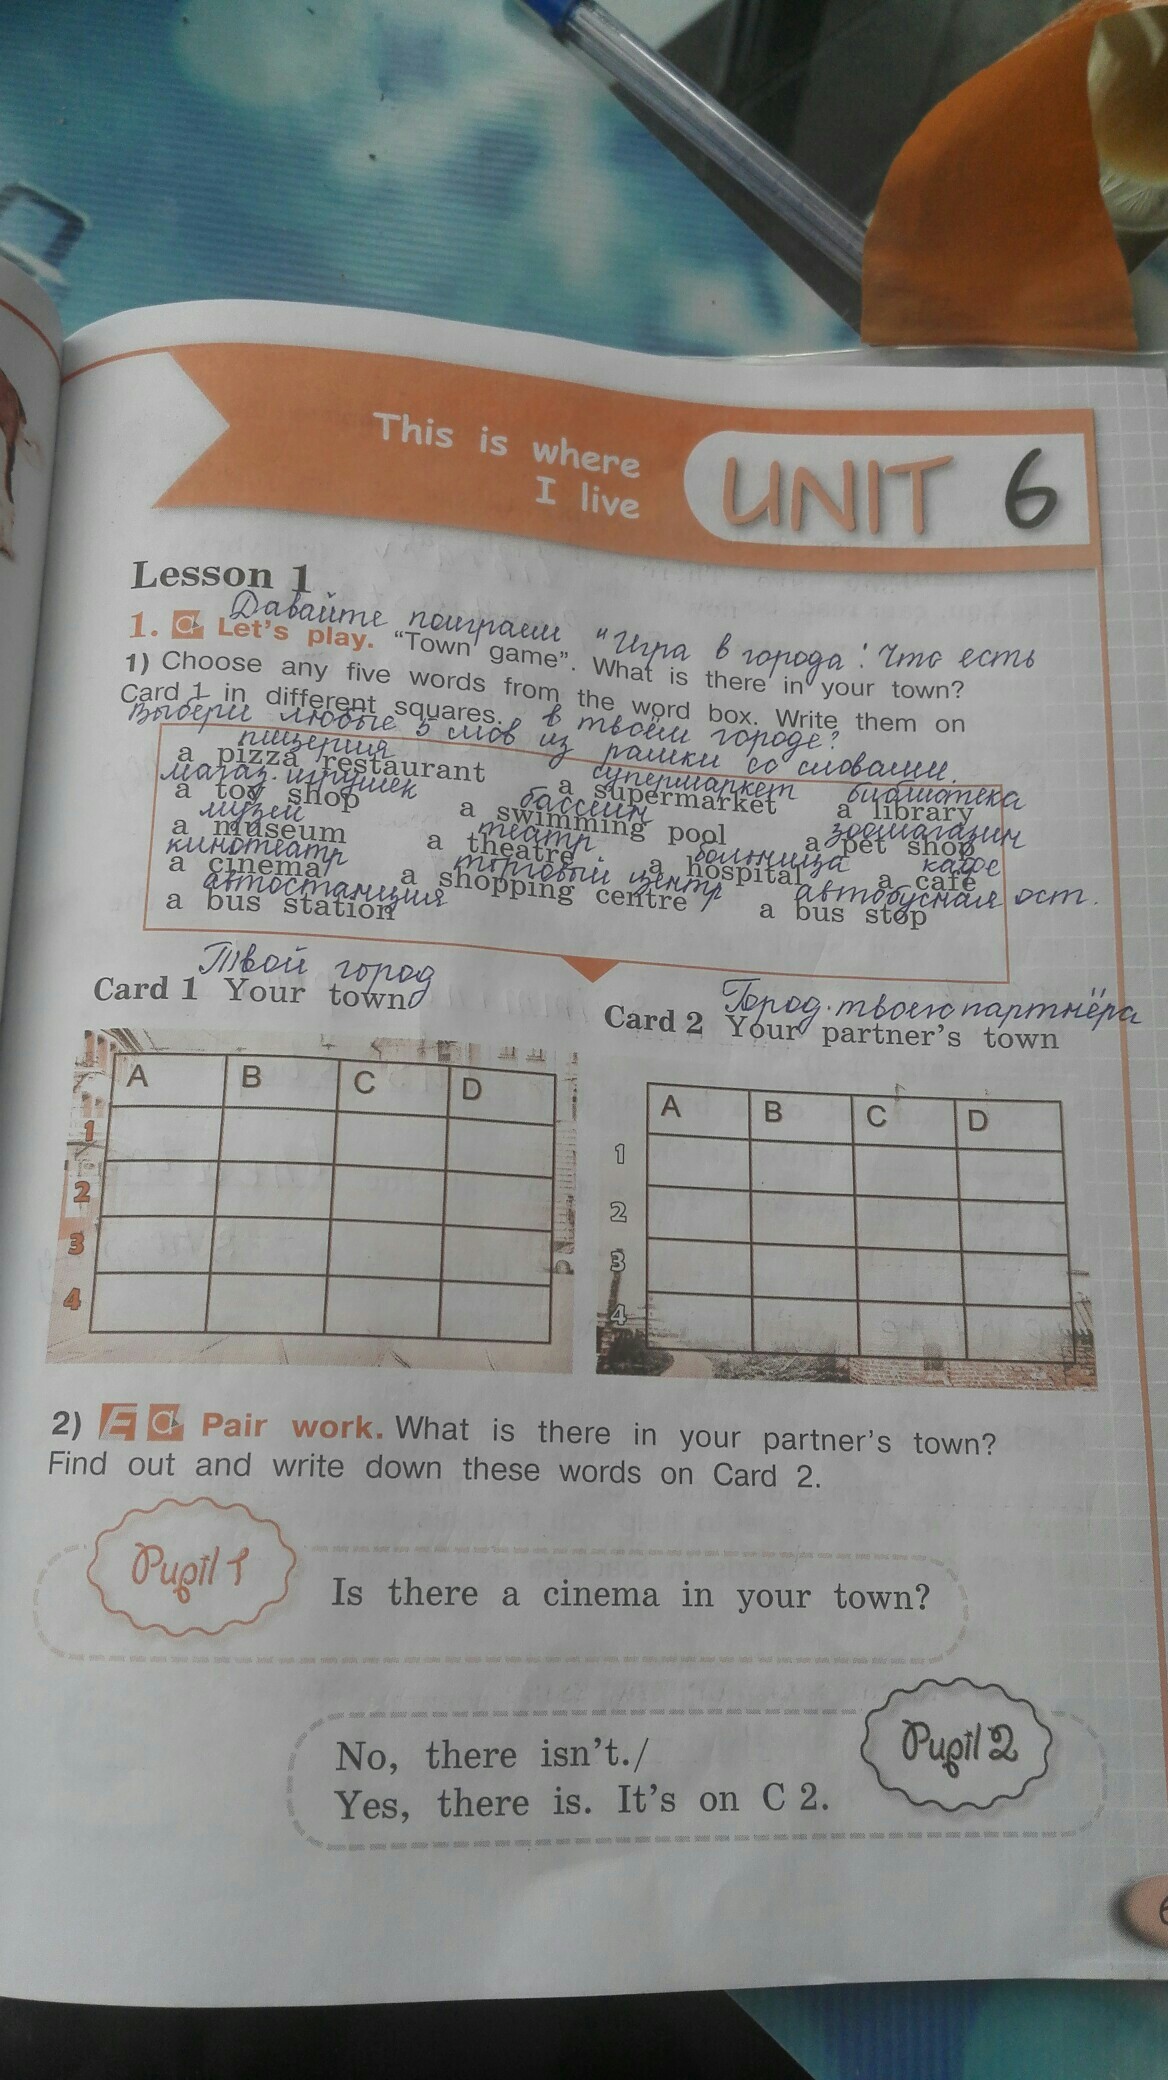 This is where
I live
UNIT 6
Lesson 1
Давайте поиграем "Игра в города": Что есть
1. Let's play. "Town game". What is there in your town?
1) Choose any five words from the word box. Write them on
Card 1 in different squares.
в твоём городе?
Выбери любые 5 слов из рамки со словами.
пиццерия
a pizza restaurant
супермаркет
a supermarket
библиотека
a library
магаз. игрушек
a toy shop
бассейн
a swimming pool
зоомагазин
a pet shop
музей
a museum
театр
a theatre
больница
a hospital
кафе
a cafe
кинотеатр
a cinema
торговый центр
a shopping centre
автобусная ост.
a bus stop
автостанция
a bus station
Твой город
Card 1 Your town
Город твоего партнёра
Card 2 Your partner's town
A B C D
1
2
3
4
A B C D
1
2
3
4
2) E a Pair work. What is there in your partner's town?
Find out and write down these words on Card 2.
Pupil 1
Is there a cinema in your town?
Pupil 2
No, there isn't./
Yes, there is. It's on C 2.